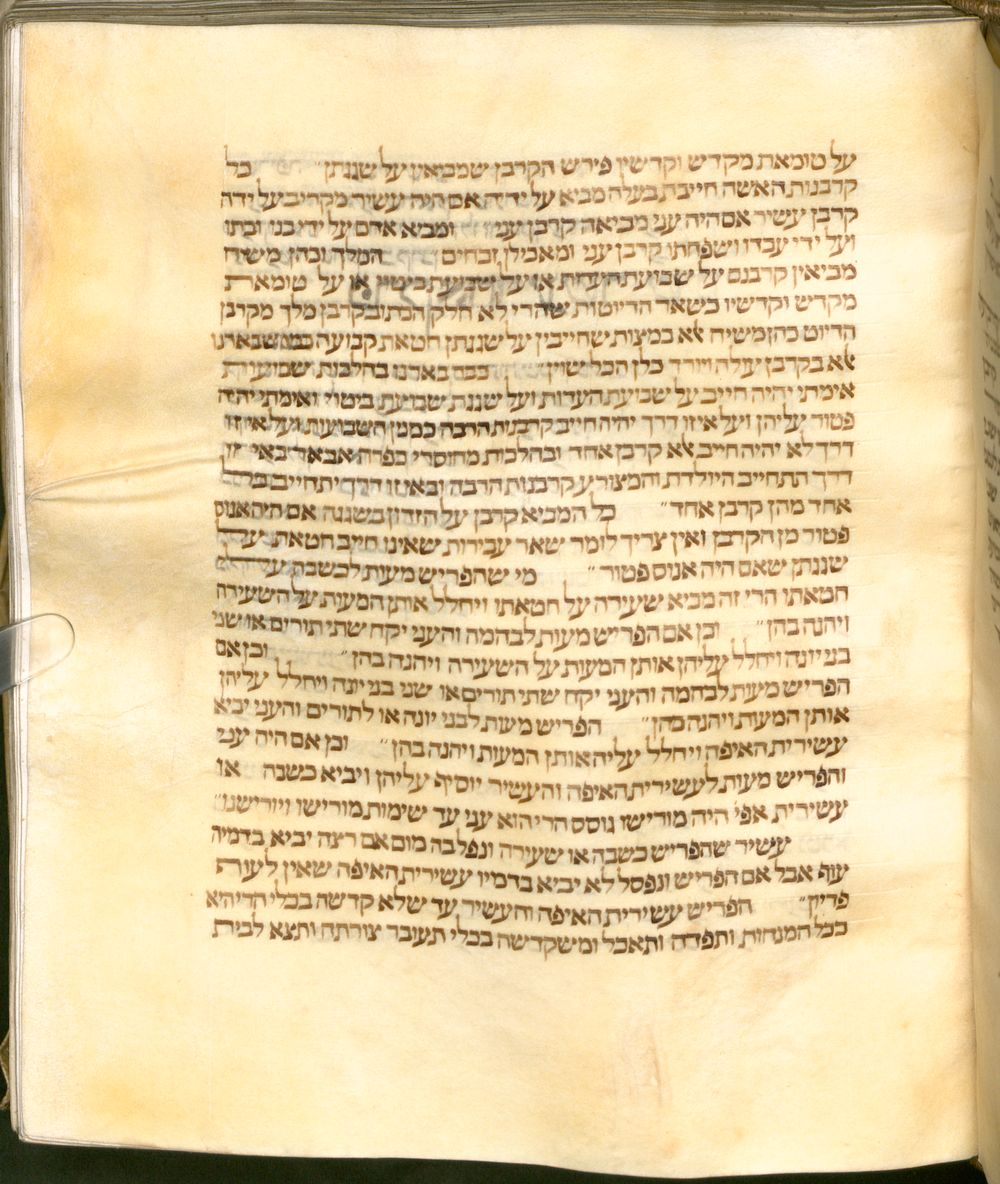 על טומאת מקדש וקדשין פירש הקרבן שמביאין על שגגתן״ כל
קרבנות האשה חייבת בעלה מביא על ידיה אם היה עשיר מקריב על ידה
קרבן עשיר אם היה עני מביאה קרבן עני ומביא אדם על ידי בנו ובתו
ועל ידי עבדו ושפחתו קרבן עני ומאכילן זבחים המלך וכהן משיח
מביאין קרבנם על שבועת העדות או על שבועת ביטוי או על טומאת
מקדש וקדשיו כשאר הדיוטות שהרי לא חלק הכתוב בקרבן מלך מקרבן
הדיוט כהן משיח לא במצות שחייבין על שגגתן חטאת קבועה כמו שבארנו
לא בקרבן עולה ויורד כולן הכל שוין״ ככם בארנו בהלכות שבועות
אימתי יהיה חייב על שבועת העדות ועל שגגת שבועת ביטוי ואימתי יהיה
פטור עליהן ועל איזו דרך יהיה חייב קרבנות הרבה כמנין השבועות ועל איזו
דרך לא יהיה חייב לא קרבן אחד ובהלכות מחוסרי כפרה אבאר באי זו
דרך תתחייב היולדת והמצורע קרבנות הרבה ובאיזו דרך יתחייב כל
אחד מהן קרבן אחד״ כל המביא קרבן על הזדון כשגגה אם היה אנוס
פטור מן הקרבן ואין צריך לומר שאר עבירות שאינו חייב חטאת על
שגגתן שאם היה אנוס פטור״ מי שהפריש מעות לכשבה על
חטאתו הרי זה מביא שעירה על חטאתו ויחלל אותן המעות על השעירה
ויהנה בהן״ וכן אם הפריש מעות לבהמה והעני יקח שתי תורים או שני
בני יונה ויחלל עליהן אותן המעות על השעירה ויהנה בהן״ וכן אם
הפריש מעות לבהמה והעני יקח שתי תורים או שני בני יונה ויחלל עליהן
אותן המעות ויהנה בהן״ הפריש מעות לבני יונה או לתורים והעני יביא
עשירית האיפה ויחלל עליה אותן המעות ויהנה בהן״ וכן אם היה עני
והפריש מעות לעשירית האיפה והעשיר יוסיף עליהן ויביא כשבה או
עשירית אפי׳ היה מורישו גוסס הרי הוא עני עד שימות מורישו ויורישנו״
עשיר שהפריש כשבה או שעירה ונפל בה מום אם רצה יביא בדמיה
עוף אבל אם הפריש ונפסל לא יביא בדמיו עשירית האיפה שאין לעוף
פדיון״ הפריש עשירית האיפה והעשיר עד שלא קדשה בכלי הרי היא
ככל המנחות ותפדה ותאכל ומשקדשה בכלי תעובר צורתה ותצא לבית